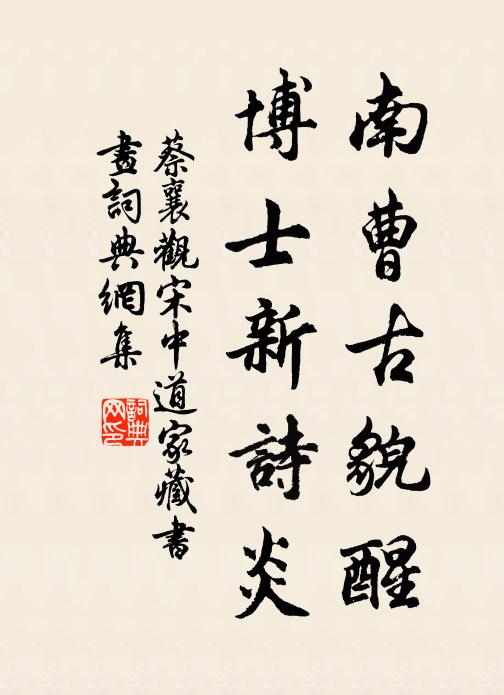 南曹古貌醒
博士新詩炎
蔡襄觀宋中道家藏書
畫詞典網集
詞典
网印